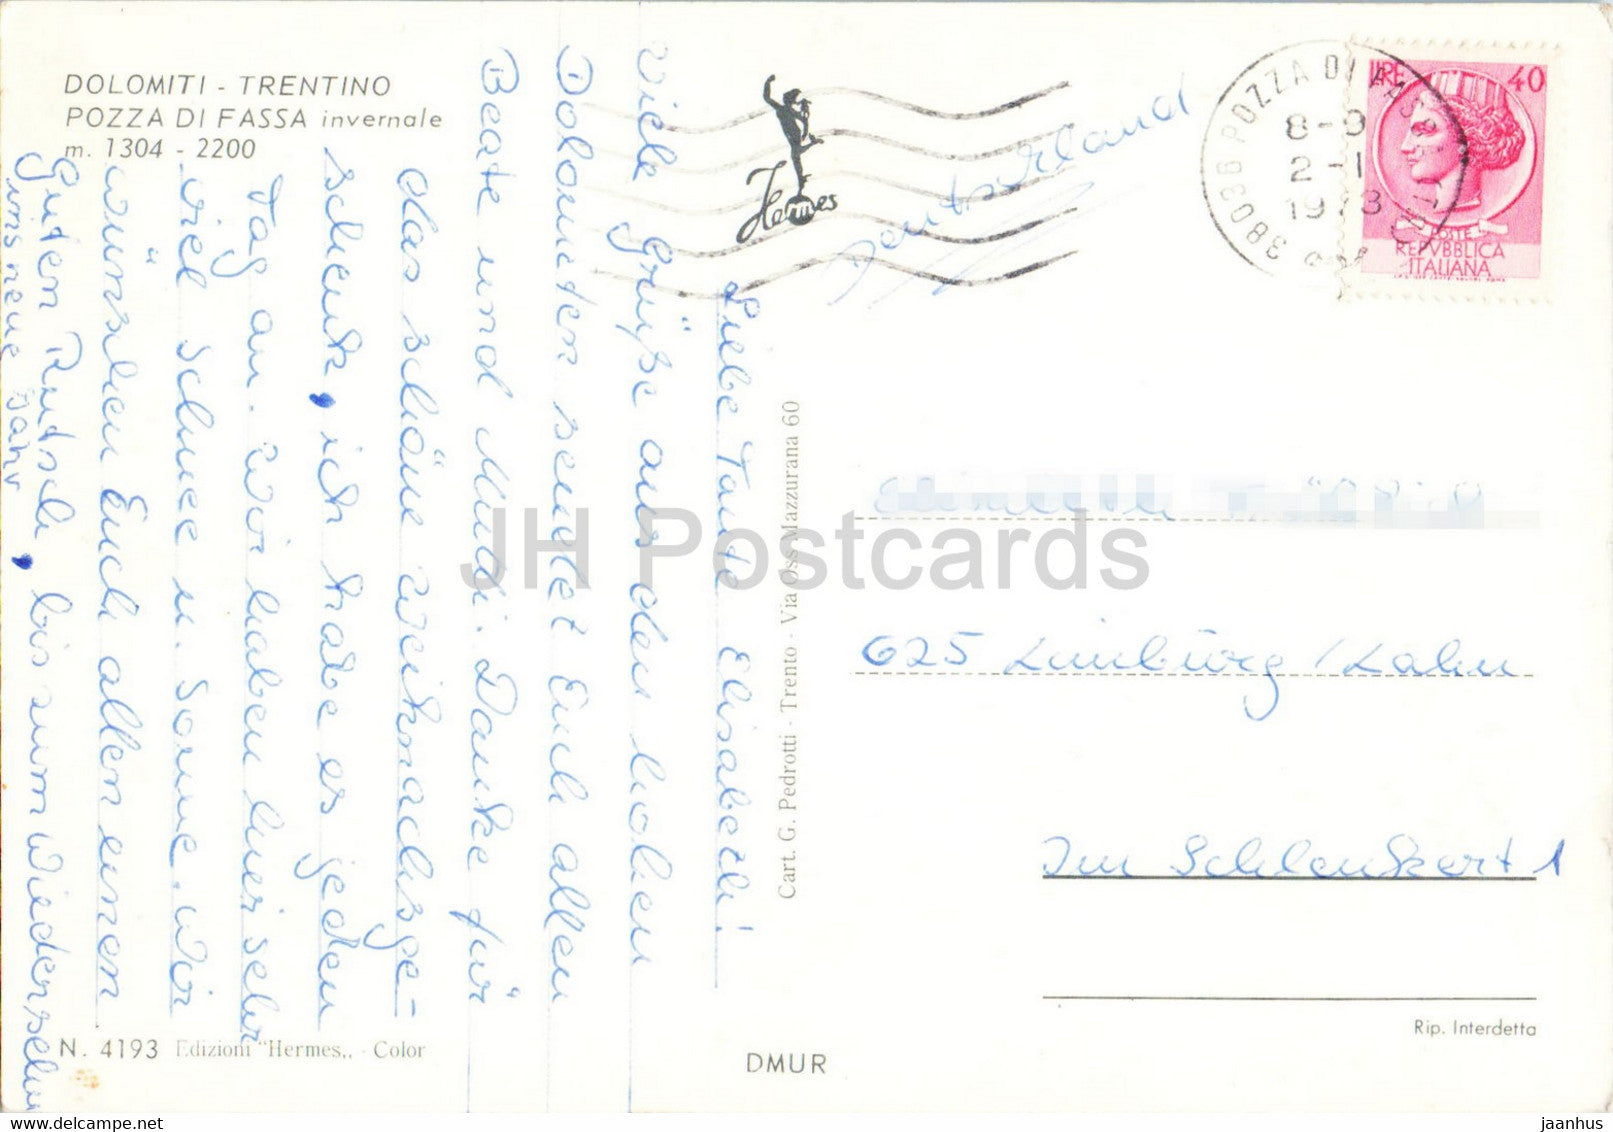 DOLOMITI - TRENTINO
POZZA DI FASSA invernale
m. 1304 - 2200
Hermes
38036 POZZA DI FASSA
8-9
2-1
1973
LIRE 40
POSTE
REPVBBLICA
ITALIANA
Deutschland
Liebe Tante Elisabeth!
Viele Grüße aus den hohen
Dolomiten sendet Euch allen
Beate und Mudi. Danke für
das schöne Weihnachtsge-
schenk, ich habe es jeden
Tag an. Wir haben hier sehr
viel Schnee u. Sonne. Wir
wünschen Euch allen einen
Guten Rutsch, bis zum Wiedersehn
ins neue Jahr
Cart. G. Pedrotti - Trento - Via Oss Mazzurana 60
625 Limburg/Lahn
Im Schlenkert 1
Rip. Interdetta
N. 4193 Edizioni "Hermes,, - Color
DMUR
JH Postcards
jaanhus
delcampe.net